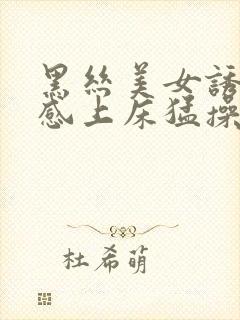 黑丝美女誘
感上床猛操
杜希萌